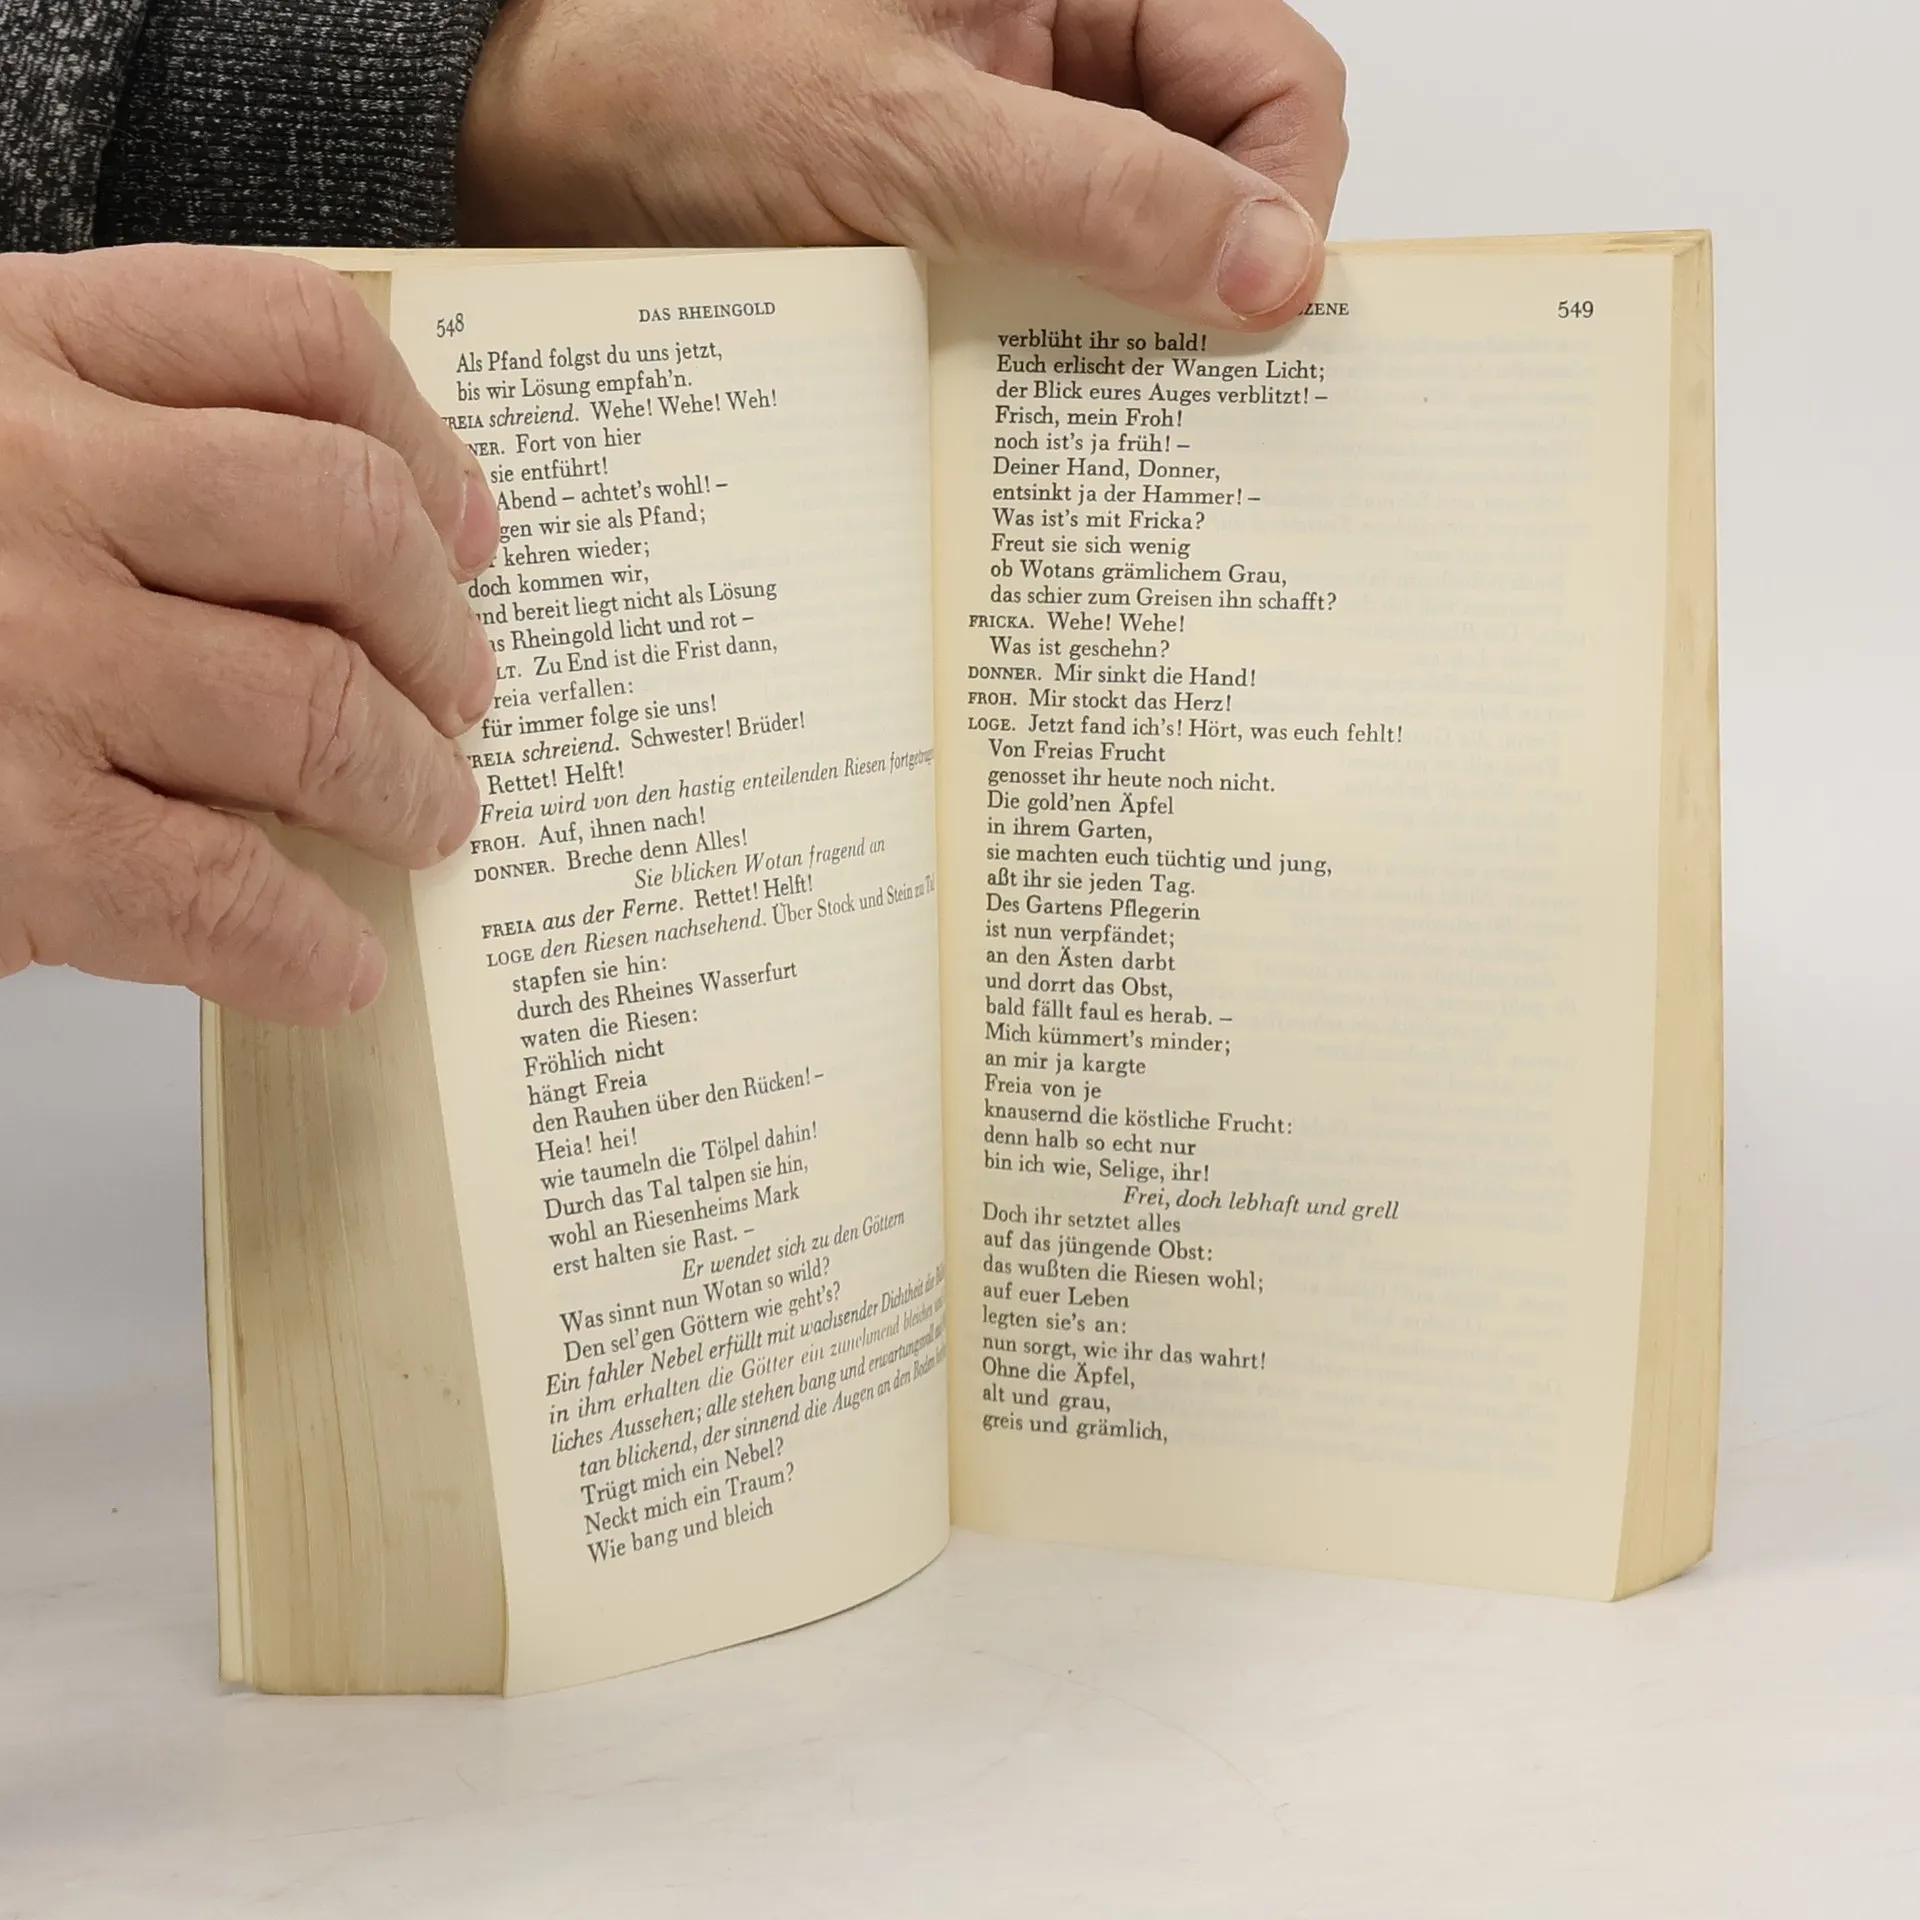 548
DAS RHEINGOLD
Als Pfand folgst du uns jetzt,
bis wir Lösung empfah'n.
REIA schreiend. Wehe! Wehe! Weh!
NER. Fort von hier
sie entführt!
Abend – achtet's wohl! –
gen wir sie als Pfand;
kehren wieder;
doch kommen wir,
und bereit liegt nicht als Lösung
s Rheingold licht und rot –
LT. Zu End ist die Frist dann,
reia verfallen:
für immer folge sie uns!
REIA schreiend. Schwester! Brüder!
Rettet! Helft!
Freia wird von den hastig enteilenden Riesen fortgetrage
FROH. Auf, ihnen nach!
DONNER. Breche denn Alles!
Sie blicken Wotan fragend an
FREIA aus der Ferne. Rettet! Helft!
LOGE den Riesen nachsehend. Über Stock und Stein zu Tal
stapfen sie hin:
durch des Rheines Wasserfurt
waten die Riesen:
Fröhlich nicht
hängt Freia
den Rauhen über den Rücken! –
Heia! hei!
wie taumeln die Tölpel dahin!
Durch das Tal talpen sie hin,
wohl an Riesenheims Mark
erst halten sie Rast. –
Er wendet sich zu den Göttern
Was sinnt nun Wotan so wild?
Den sel'gen Göttern wie geht's?
Ein fahler Nebel erfüllt mit wachsender Dichtheit die
in ihm erhalten die Götter ein zunehmend bleiches
liches Aussehen; alle stehen bang und erwartungsvoll
tan blickend, der sinnend die Augen an den Boden
Trügt mich ein Nebel?
Neckt mich ein Traum?
Wie bang und bleich
ZENE
549
verblüht ihr so bald!
Euch erlischt der Wangen Licht;
der Blick eures Auges verblitzt! –
Frisch, mein Froh!
noch ist's ja früh! –
Deiner Hand, Donner,
entsinkt ja der Hammer! –
Was ist's mit Fricka?
Freut sie sich wenig
ob Wotans grämlichem Grau,
das schier zum Greisen ihn schafft?
FRICKA. Wehe! Wehe!
Was ist geschehn?
DONNER. Mir sinkt die Hand!
FROH. Mir stockt das Herz!
LOGE. Jetzt fand ich's! Hört, was euch fehlt!
Von Freias Frucht
genosset ihr heute noch nicht.
Die gold'nen Äpfel
in ihrem Garten,
sie machten euch tüchtig und jung,
aßt ihr sie jeden Tag.
Des Gartens Pflegerin
ist nun verpfändet;
an den Ästen darbt
und dorrt das Obst,
bald fällt faul es herab. –
Mich kümmert's minder;
an mir ja kargte
Freia von je
knausernd die köstliche Frucht:
denn halb so echt nur
bin ich wie, Selige, ihr!
Frei, doch lebhaft und grell
Doch ihr setztet alles
auf das jüngende Obst:
das wußten die Riesen wohl;
auf euer Leben
legten sie's an:
nun sorgt, wie ihr das wahrt!
Ohne die Äpfel,
alt und grau,
greis und grämlich,